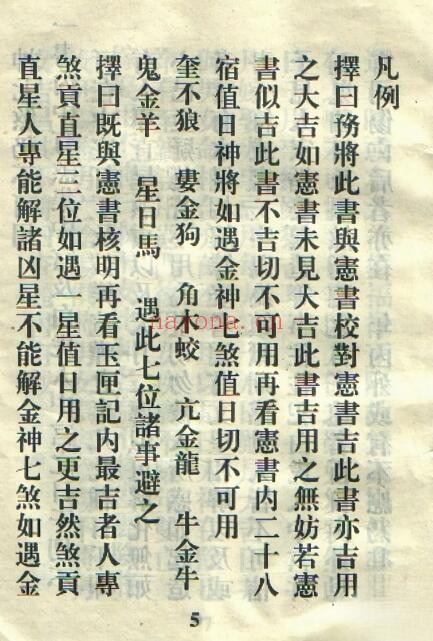 凡例
擇曰務將此書與憲書校對憲書吉此書亦吉用
之大吉如憲書未見大吉此書吉用之無妨若憲
書似吉此書不吉切不可用再看憲書內二十八
宿值日神將如遇金神七煞值日切不可用
奎不狼 婁金狗 角木蛟 亢金龍 牛金牛
鬼金羊 星日馬 遇此七位諸事避之
擇曰既與憲書核明再看玉匣記內最吉者人專
煞貢直星三位如遇一星值日用之更吉然煞貢
直星人專能解諸凶星不能解金神七煞如遇金
5
nayona.cn